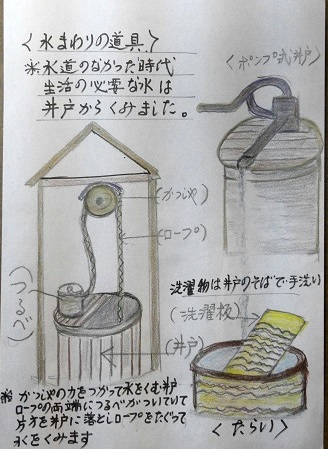 〈水まわりの道具〉
※水道のなかった時代
生活の必要な水は
井戸からくみました。
〈ポンプ式井戸〉
(かっしゃ)
(ロープ)
(つるべ)
(井戸)
洗濯物は井戸のそばで手洗い
(洗濯板)
〈たらい〉
※かっしゃの力をつかって水をくむ井戸
ロープの両端につるべがついていて
片方を井戸に落としロープをたぐって
水をくみます